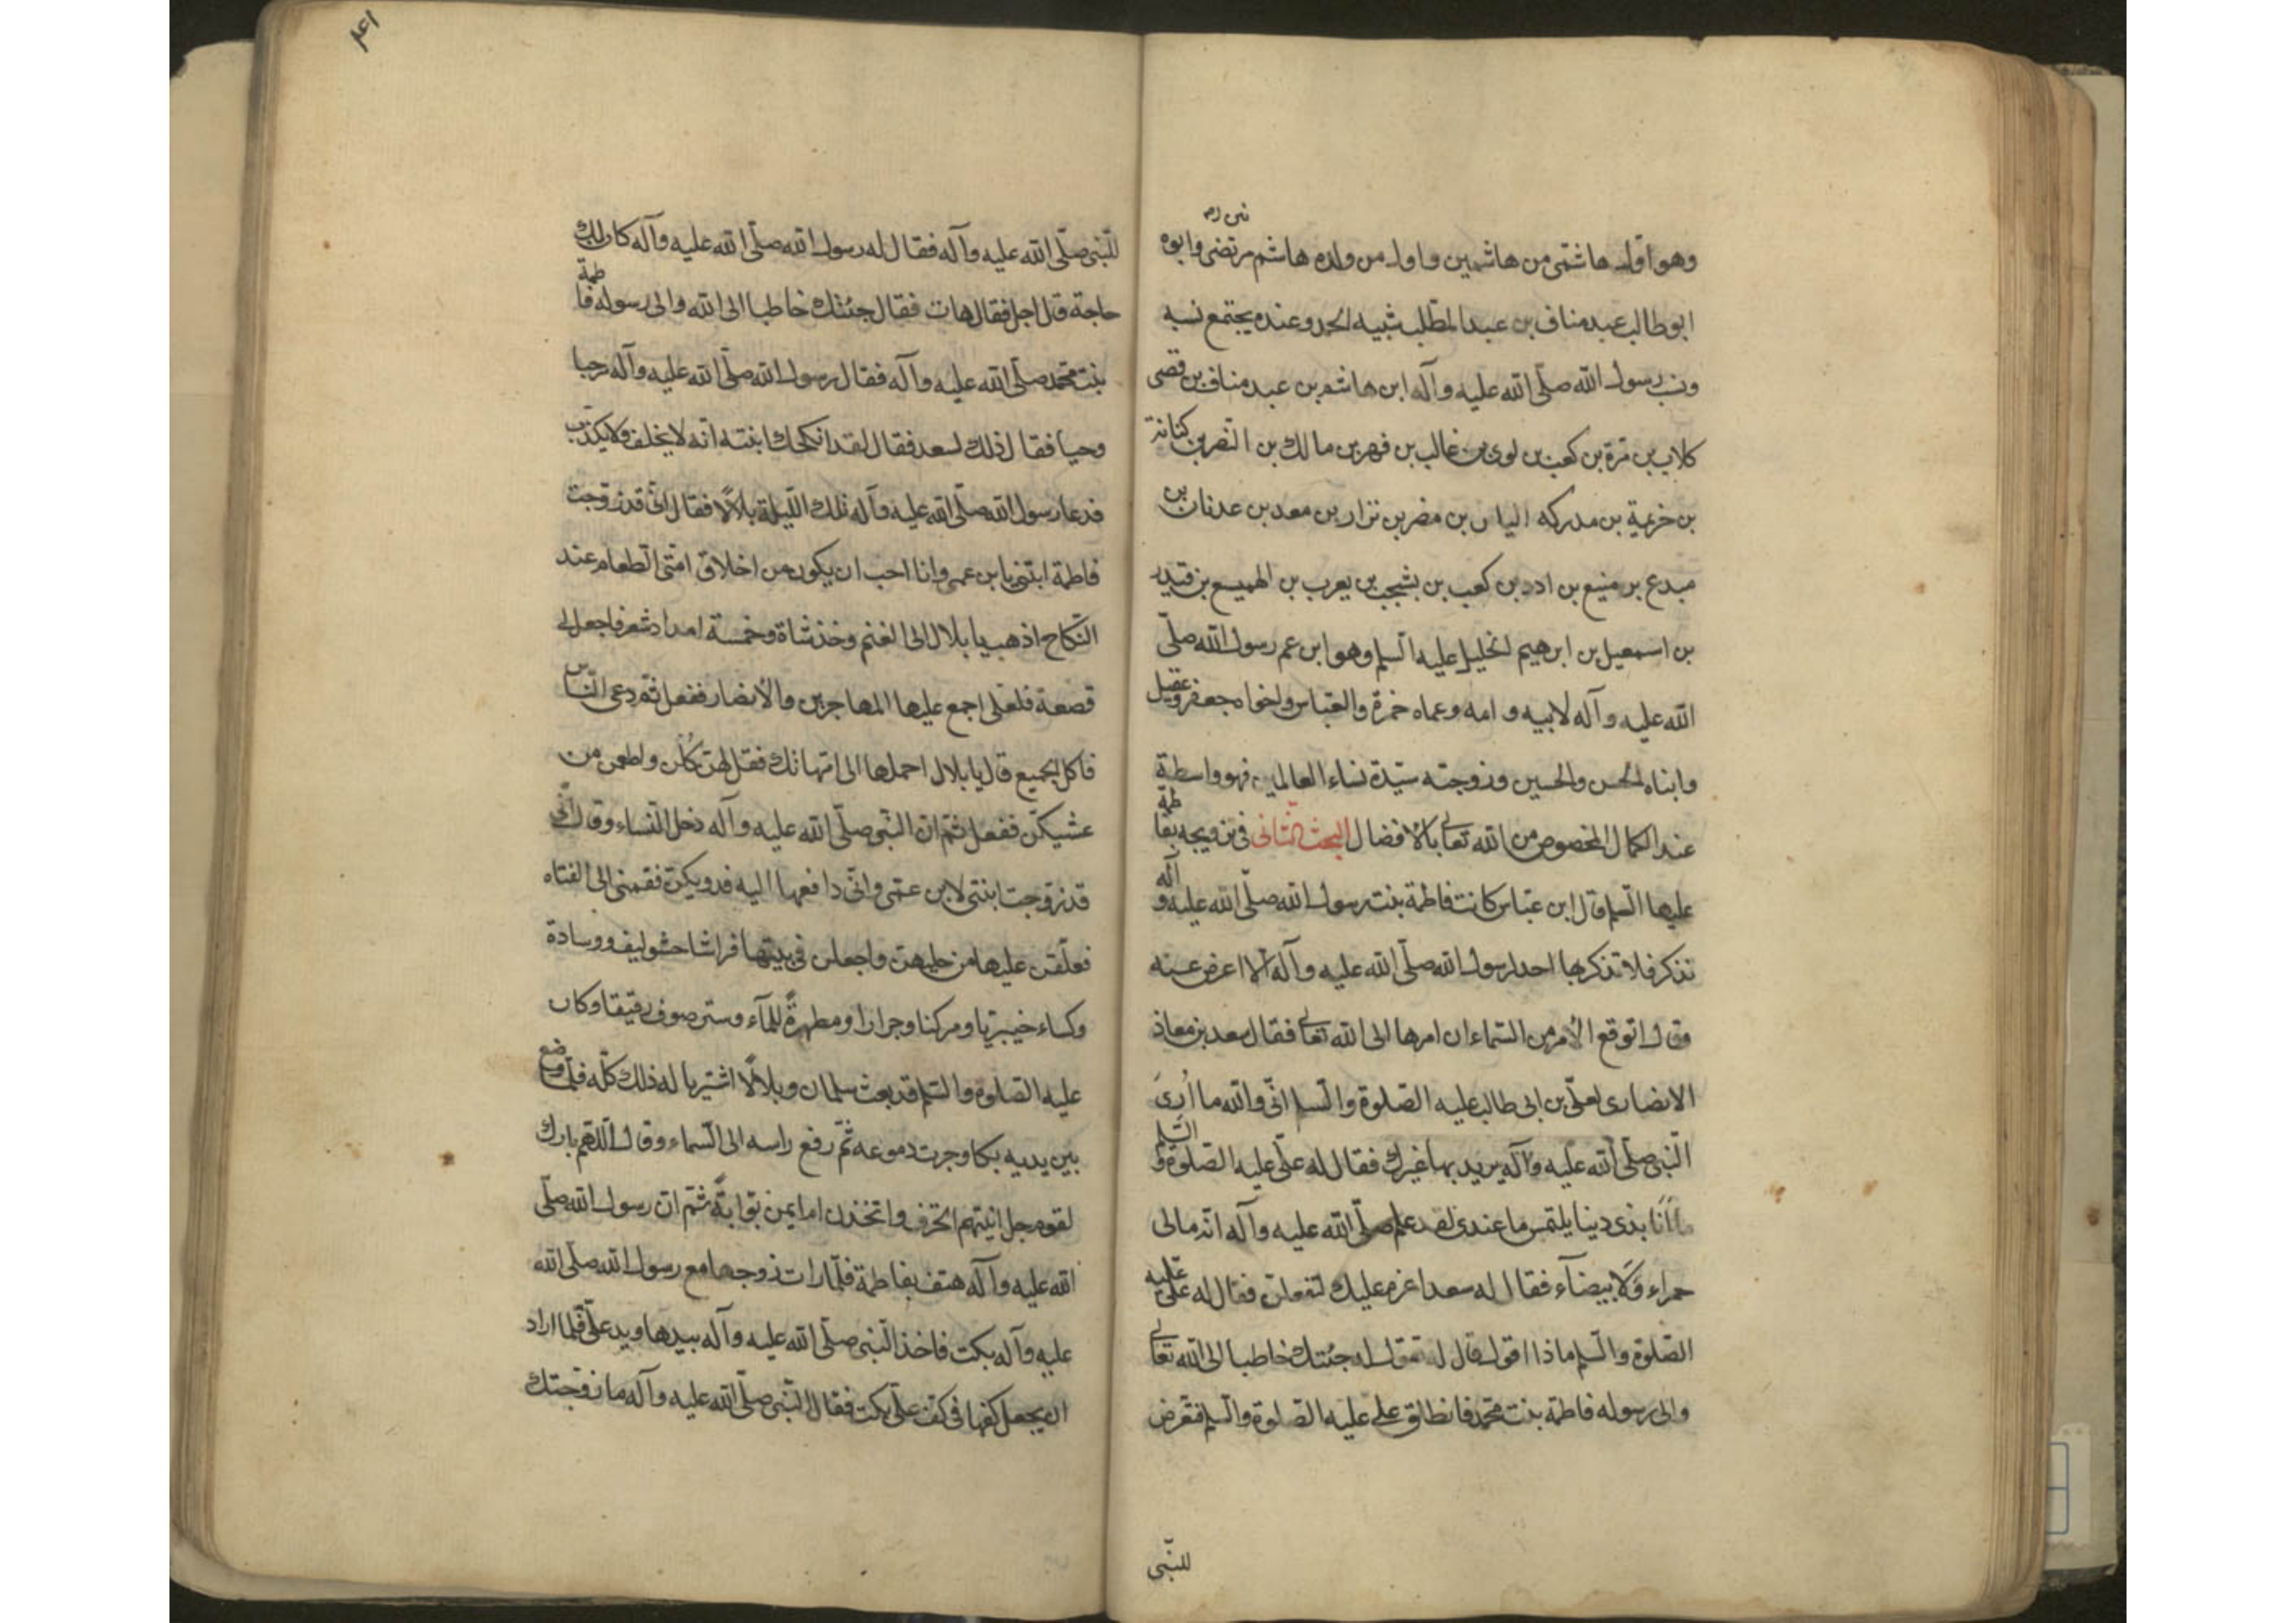 وهو اول هاشمى من هاشميين واول من ولده هاشم مرتضى وابوه
ابو طالب عبد مناف بن عبد المطلب شيبه الحمد وعنده يجتمع نسبه
ونسب رسول الله صلّى الله عليه وآله ابن هاشم بن عبد مناف بن قصى
كلاب بن مرّة بن كعب بن لوى بن غالب بن فهر بن مالك بن النضر بن كنانة
بن خزيمة بن مدركه الياس بن مضر بن نزار بن معد بن عدنان بن
ميدع بن منيع بن ادد بن كعب بن يشجب بن يعرب بن الهميسع بن قيدر
بن اسمعيل بن ابرهيم الخليل عليه السلم وهو ابن عم رسول الله صلّى
الله عليه وآله لابيه وامه وعماه حمزة والعباس واخواه جعفر وعقيل
وابناه الحسن والحسين وزوجته سيّدة نساء العالمين فهو واسطة
عند الكمال المخصوص من الله تعالى بالافضال البحث الثانى فى تزويجه بفاطمة
عليها السلم قال ابن عبّاس كانت فاطمة بنت رسول الله صلّى الله عليه وآله
تذكر فلا تذكرها احد لرسول الله صلّى الله عليه وآله الا اعرض عنه
وقال اتوقع الأمر من السّماء ان امرها الى الله تعالى فقال سعد بن معاذ
الانصارى لعلّى بن ابى طالب عليه الصّلوة والسلم انّى والله ما أرىَ
النّبى صلّى الله عليه وآله يريد بها غيرك فقال له علّى عليه الصّلوة والسّلم
ما أنا بذى دينا يلتمس ما عندى لقد علم صلّى الله عليه وآله انّه مالى
حمراء وَلا بيضآء فقال له سعد اعزم عليك لتفعلن فقال له علىّ عليه
الصّلوة والسّلم ماذا اقول قال له تقول له جئتك خاطبا الى الله تعالى
والى رسوله فاطمة بنت محمّد فانطلق على عليه الصّلوة والسّلم فتعرض
للنّبى
للنّبى صلّى الله عليه وآله فقال له رسول الله صلّى الله عليه وآله كان لك
حاجة قال اجل فقال هات فقال جئتك خاطبا الى الله والى رسوله فاطمة
بنت محمّد صلّى الله عليه وآله فقال رسول الله صلّى الله عليه وآله مرحبا
وحبا فقال ذلك لسعد فقال لقد انكحك ابنته انّه لا يخلف ولا يكذب
فدعا رسول الله صلّى الله عليه وآله تلك اللّيلة بلالاً فقال انّى قد زوّجت
فاطمة ابنتى بابن عمى وانا احب ان يكون من اخلاق امّتى الطعام عند
النّكاح اذهب يا بلال الى الغنم وخذ شاة وخمسة امداد شعر فاجعل لى
قصعة فلعلى اجمع عليها المهاجرين والأنصار ففعل ثم دعى النّاس
فاكل الجميع قال يا بلال احملها الى امهاتك فقل لهن كُلن واطعمن من
عشيكنّ ففعل ثمّ ان النّبى صلّى الله عليه وآله دخل النّساء وقال انّى
قد زوّجت ابنتى لابن عمّى وانّى دافعها اليه فدونكن فقمنى الى الفتاه
فعلّقن عليها من حليهنّ واجعلن فى بيتها فراشا حشو ليف ووسادة
وكساء خيبريّا ومركنا وجرارا ومطهرةً للمآء وستر صوف رقيقا وكان
عليه الصّلوة والسّلم قد بعث سلمان وبلالاً اشتريا له ذلك كلّه فلمّا وضع
بين يديه بكا وجرت دموعه ثمّ رفع راسه الى السّماء وقال اللّهم بارك
لقوم جل انيتهم الخزف واتخذن ام ايمن بوّابةً ثمّ ان رسول الله صلّى
الله عليه وآله هتف بفاطمة فلمّا رات زوجها مع رسول الله صلّى الله
عليه وآله بكت فاخذ النّبى صلّى الله عليه وآله بيدها ويد علىّ فلما اراد
ان يجعل كفها فى كفّ علىّ بكت فقال النّبى صلّى الله عليه وآله ما زوّجتك